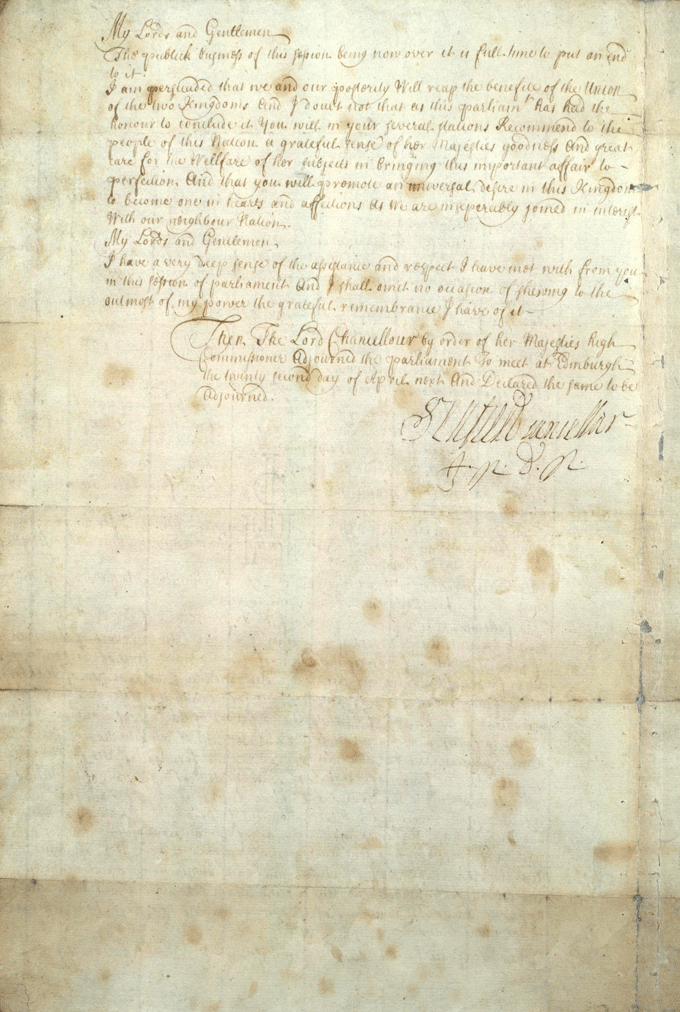 My Lords and Gentlemen
The publick business of this session being now over it is full time to put an end
to it.
I am perswaded that we and our posterity Will reap the benefite of the Union
of the two Kingdoms And I doubt not that as this parliamt has had the
honour to conclude it You will in your several stations Recommend to the
people of this Nation a grateful sense of her Majesties goodness And great
care for the Wellfare of her subjects in bringing this important affair to
perfection. And that you will promote an universal desire in this Kingdom
to become one in hearts and affections As we are inseperably joined in interest
With our neighbour Nation.
My Lords and Gentlemen,
I have a very deep sense of the assistance and respect I have met with from you
in this session of parliament And I shall omit no occasion of shewing to the
outmost of my power the grateful remembrance I have of it
Then The Lord Chancellour by order of her Majesties high
Commissioner Adjourned the parliament To meet at Edinburgh
the twenty second day of April next And Declared the same to be
Adjourned.
Seafield Cancellar
I. P. D. P.